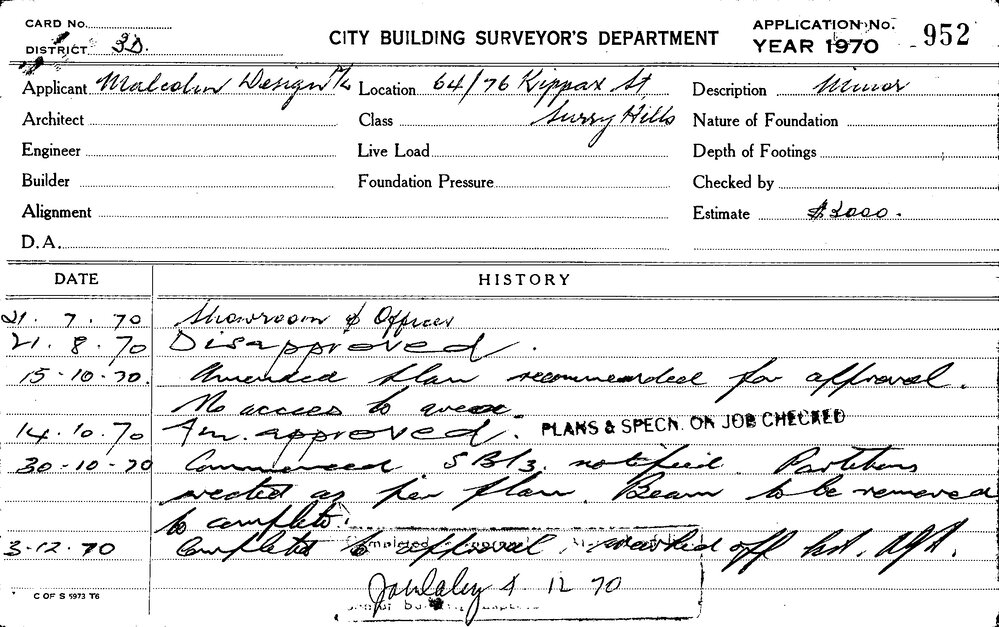 CARD No.
DISTRICT 3D.
CITY BUILDING SURVEYOR'S DEPARTMENT
APPLICATION No. 952
YEAR 1970
Applicant Malcolm Design Location 64/76 Kippax St Description Minor
Architect Class Surry Hills Nature of Foundation
Engineer Live Load Depth of Footings
Builder Foundation Pressure Checked by
Alignment Estimate $2000.
D.A.
DATE HISTORY
21.7.70 Showroom & Offices
21.8.70 Disapproved.
15-10-70. Amended plan recommended for approval.
No access to area.
14.10.70 Am. approved. PLANS & SPECN. ON JOB CHECKED
30-10-70 Commenced. SB/3 notified. Partitions
erected as per plan. Beam to be removed
to complete.
3.12.70 Completed to approval. marked off list.
4 12 70
C OF S 5973 T6